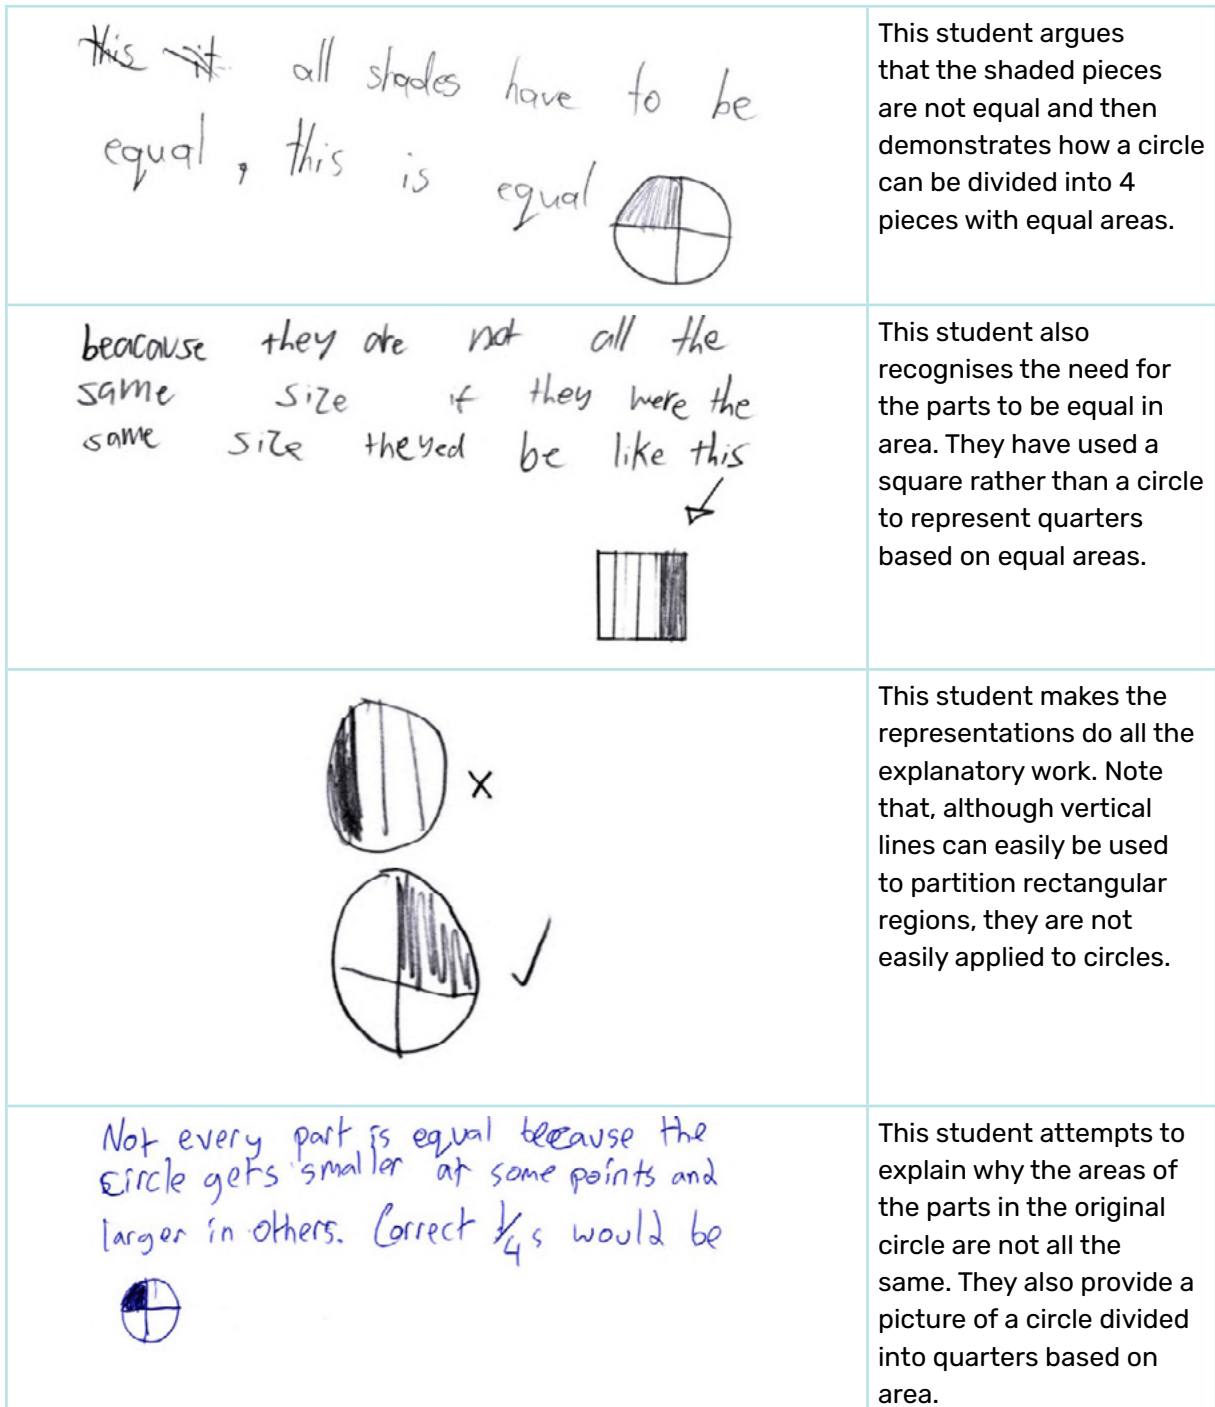 this it all shades have to be
equal, this is equal
This student argues
that the shaded pieces
are not equal and then
demonstrates how a circle
can be divided into 4
pieces with equal areas.
beacause they are not all the
same size if they were the
same size theyed be like this
This student also
recognises the need for
the parts to be equal in
area. They have used a
square rather than a circle
to represent quarters
based on equal areas.
x
✓
This student makes the
representations do all the
explanatory work. Note
that, although vertical
lines can easily be used
to partition rectangular
regions, they are not
easily applied to circles.
Not every part is equal because the
circle gets smaller at some points and
larger in others. Correct 1/4s would be
This student attempts to
explain why the areas of
the parts in the original
circle are not all the
same. They also provide a
picture of a circle divided
into quarters based on
area.